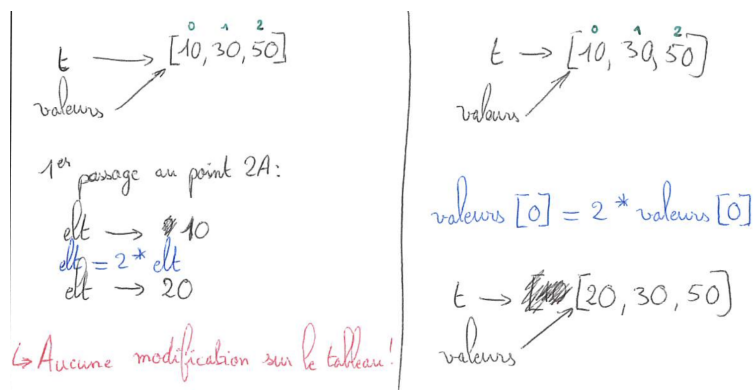 0 1 2
t → [10, 30, 50]
valeurs
1er passage au point 2A:
elt → 10
elt = 2 * elt
elt → 20
↳ Aucune modification sur le tableau!
0 1 2
t → [10, 30, 50]
valeurs
valeurs [0] = 2 * valeurs [0]
t → [20, 30, 50]
valeurs